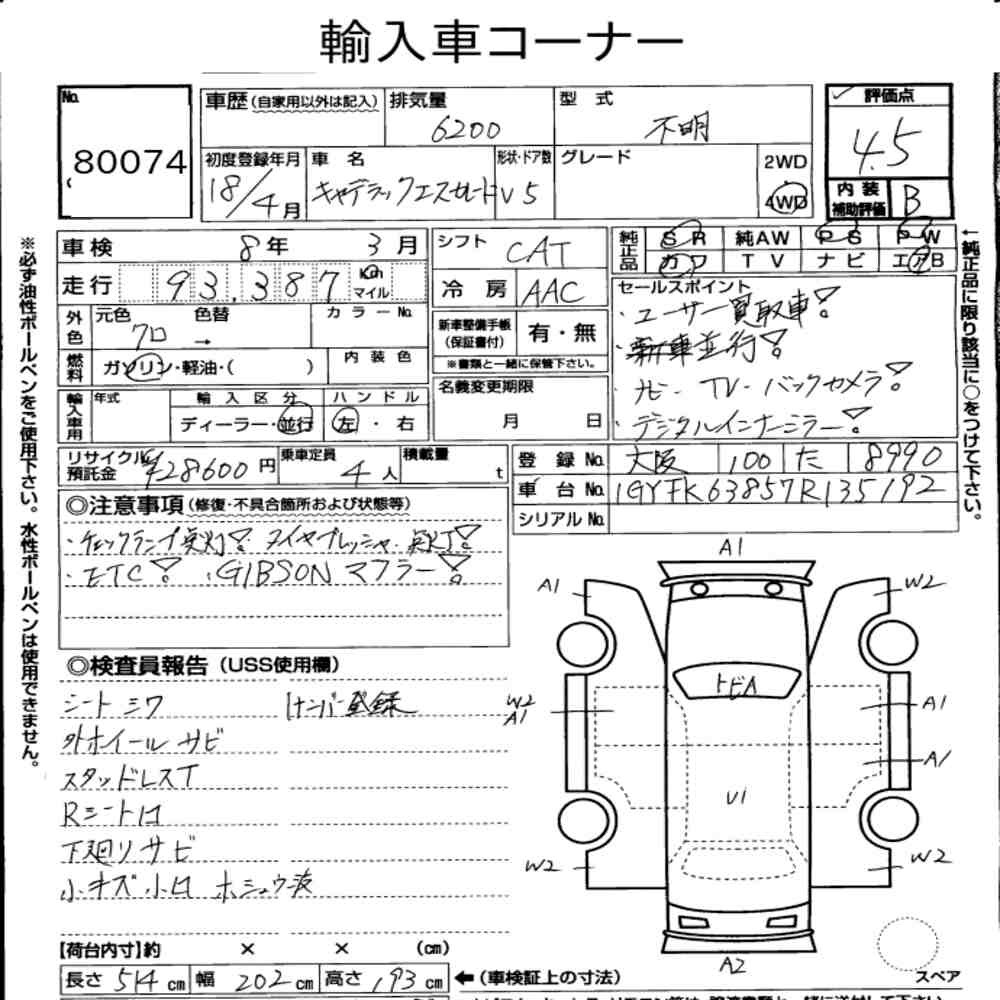 輸入車コーナー
No. 80074
車歴(自家用以外は記入) 排気量 6200 型式 不明 評価点 4.5
初度登録年月 18/4月 車名 キャデラックエスカレード 形状・ドア数 V5 グレード 2WD 4WD 内装補助評価 B
※必ず油性ボールペンをご使用下さい。水性ボールペンは使用できません。
↑純正品に限り該当に○をつけて下さい。
車検 8年 3月 シフト CAT 純正品 SR 純AW PS PW
カワ TV ナビ エアB
走行 93,387 Km マイル 冷房 AAC セールスポイント
外色 元色 クロ 色替 → カラーNo. 新車整備手帳(保証書付) 有・無
※書類と一緒に保管下さい。
・ユーザー買取車!
・新車並行!
・ナビ・TV・バックカメラ!
・デジタルインナーミラー!
燃料 ガソリン・軽油・( ) 内装色 名義変更期限 月 日
輸入車用 年式 輸入区分 ハンドル
ディーラー・並行 左・右
リサイクル預託金 ¥28600円 乗車定員 4人 積載量 t 登録No. 大阪 100 た 8990
車台No. 1GYFK63857R135192
シリアルNo.
◎注意事項(修復・不具合箇所および状態等)
・チェックランプ点灯! タイヤプレッシャー点灯!
・ETC! ・GIBSONマフラー!
◎検査員報告(USS使用欄)
シートシワ 1ナンバー登録
外ホイールサビ
スタッドレスT
Rシート1コ
下廻りサビ
小キズ小凹 ホシュウ液
A1
A1 W2
トビA
W2 A1 A1
A1
U1
W2 W2
A2
スペア
【荷台内寸】約 × × (cm)
長さ 514 cm 幅 202 cm 高さ 193 cm ←(車検証上の寸法)